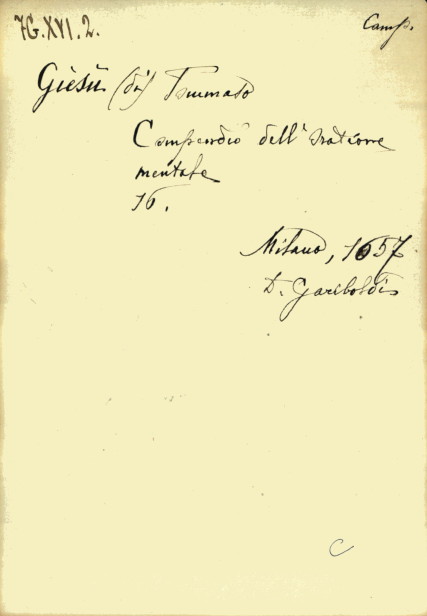 7G.XVI.2.
Camp.
Giesù (di) Tommaso
Compendio dell'oratione
mentale
16.
Milano, 1657
D. Gariboldis
C